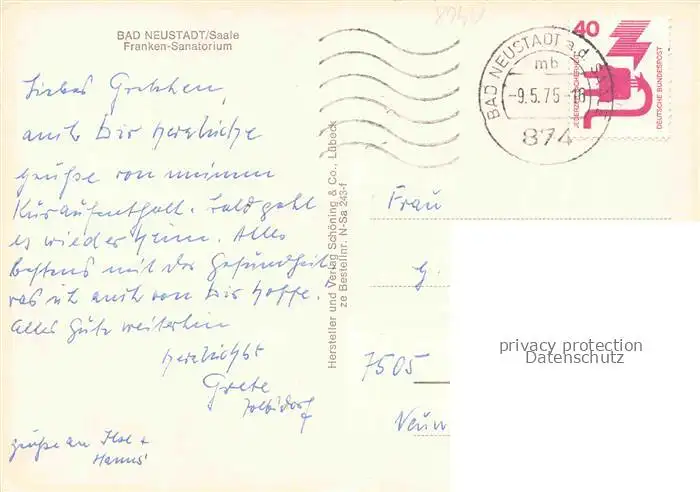 BAD NEUSTADT/Saale
Franken-Sanatorium
Liebes Gretchen,
auch Dir herzliche
Grüße von meinem
Kuraufenthalt. Bald geht
es wieder heim. Alles
bestens mit der Gesundheit,
was ich auch von Dir hoffe.
Alles Gute weiterhin
herzlichst
Grete
Grüße an Ilse +
Hanns
Hersteller und Verlag Schöning & Co., Lübeck
ze Bestellnr. N-Sa 243-f
BAD NEUSTADT a.d.
mb
-9.5.75-18
874
40
JEDERZEIT SICHERHEIT
DEUTSCHE BUNDESPOST
Frau
G.
7505
privacy protection
Datenschutz